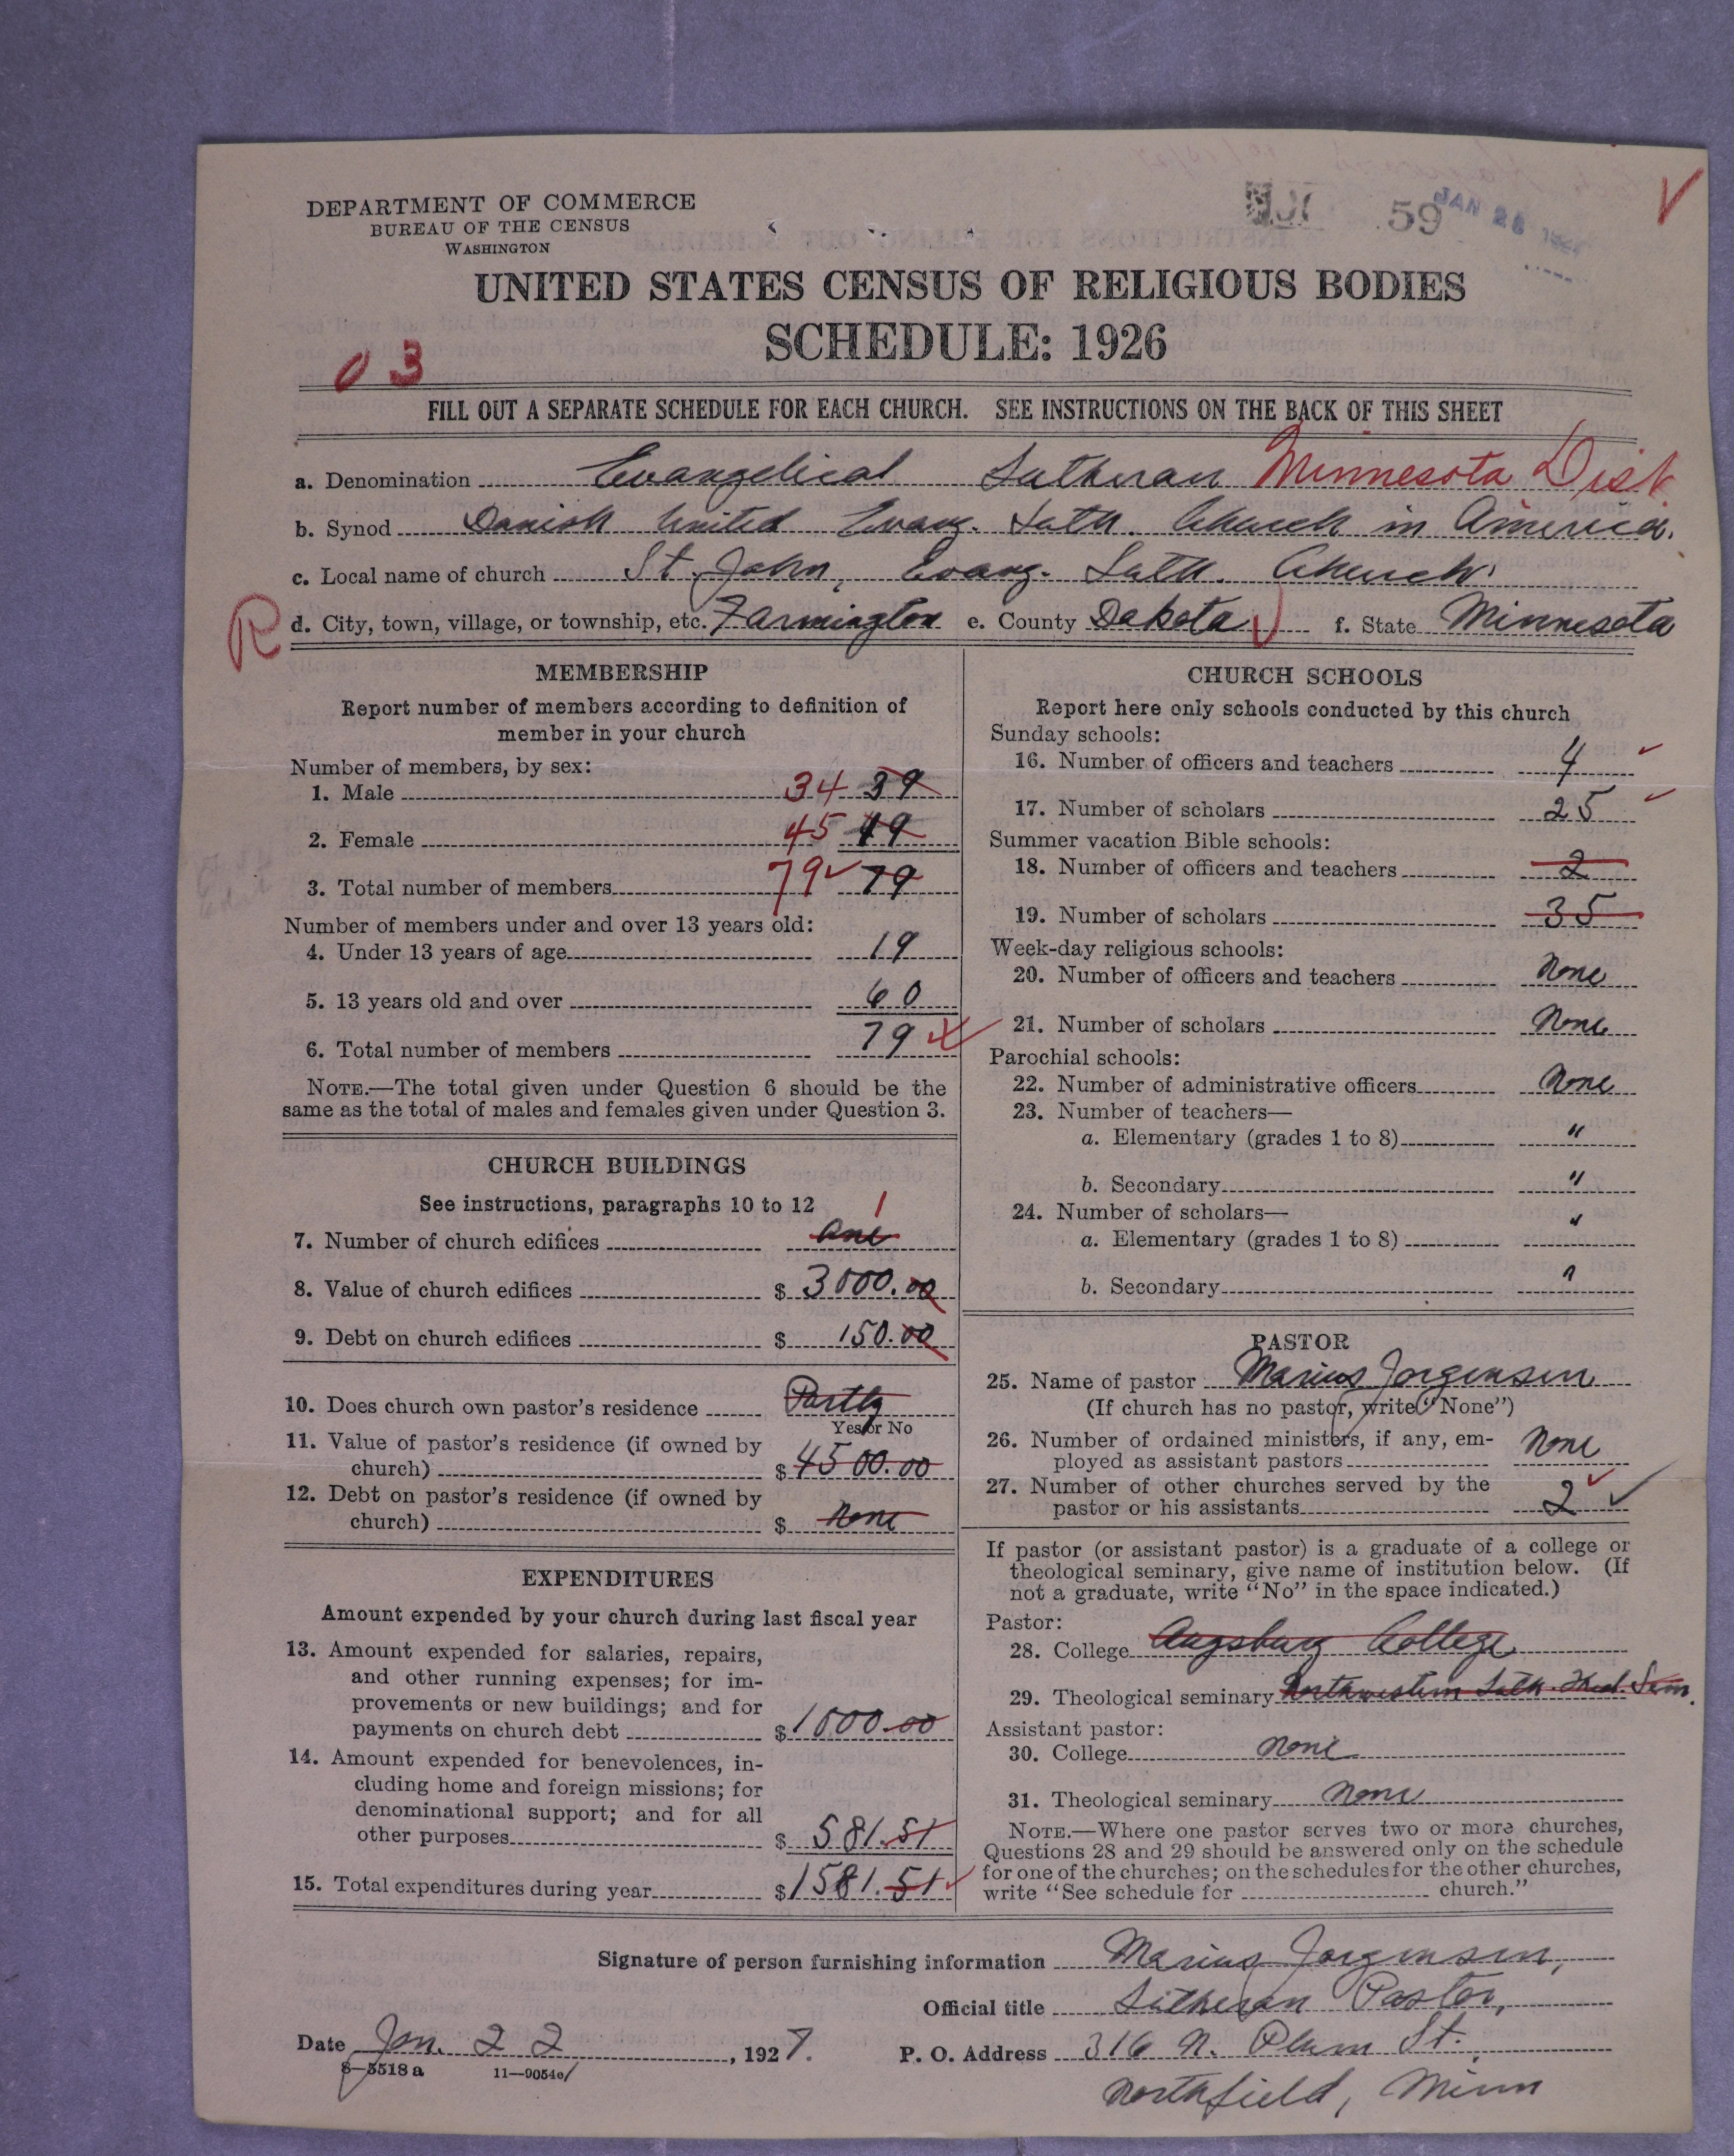 DEPARTMENT OF COMMERCE
BUREAU OF THE CENSUS
WASHINGTON
59
JAN 26
UNITED STATES CENSUS OF RELIGIOUS BODIES
SCHEDULE: 1926
03
FILL OUT A SEPARATE SCHEDULE FOR EACH CHURCH. SEE INSTRUCTIONS ON THE BACK OF THIS SHEET
a. Denomination Evangelical Lutheran Minnesota Dist.
b. Synod Danish United Evang. Luth. Church in America.
c. Local name of church St. John, Evang. Luth. Church
R d. City, town, village, or township, etc. Farmington e. County Dakota f. State Minnesota
MEMBERSHIP
Report number of members according to definition of
member in your church
Number of members, by sex:
1. Male 34 39
2. Female 45 49
3. Total number of members 79 79
Number of members under and over 13 years old:
4. Under 13 years of age 19
5. 13 years old and over 60
6. Total number of members 79
NOTE.—The total given under Question 6 should be the
same as the total of males and females given under Question 3.
CHURCH BUILDINGS
See instructions, paragraphs 10 to 12
7. Number of church edifices one 1
8. Value of church edifices $ 3000.00
9. Debt on church edifices $ 150.00
10. Does church own pastor's residence Partly
Yes or No
11. Value of pastor's residence (if owned by
church) $ 4500.00
12. Debt on pastor's residence (if owned by
church) $ None
EXPENDITURES
Amount expended by your church during last fiscal year
13. Amount expended for salaries, repairs,
and other running expenses; for im-
provements or new buildings; and for
payments on church debt $ 1000.00
14. Amount expended for benevolences, in-
cluding home and foreign missions; for
denominational support; and for all
other purposes $ 581.51
15. Total expenditures during year $ 1581.51
CHURCH SCHOOLS
Report here only schools conducted by this church
Sunday schools:
16. Number of officers and teachers 4
17. Number of scholars 25
Summer vacation Bible schools:
18. Number of officers and teachers 2
19. Number of scholars 35
Week-day religious schools:
20. Number of officers and teachers None
21. Number of scholars None
Parochial schools:
22. Number of administrative officers None
23. Number of teachers—
a. Elementary (grades 1 to 8) "
b. Secondary "
24. Number of scholars—
a. Elementary (grades 1 to 8) "
b. Secondary "
PASTOR
25. Name of pastor Marius Jorgensen
(If church has no pastor, write "None")
26. Number of ordained ministers, if any, em-
ployed as assistant pastors None
27. Number of other churches served by the
pastor or his assistants 2
If pastor (or assistant pastor) is a graduate of a college or
theological seminary, give name of institution below. (If
not a graduate, write "No" in the space indicated.)
Pastor:
28. College Augsburg College
29. Theological seminary Northwestern Luth. Theol. Sem.
Assistant pastor:
30. College None
31. Theological seminary None
NOTE.—Where one pastor serves two or more churches,
Questions 28 and 29 should be answered only on the schedule
for one of the churches; on the schedules for the other churches,
write "See schedule for church."
Signature of person furnishing information Marius Jorgensen,
Official title Lutheran Pastor,
Date Jan. 22, 1927. P. O. Address 316 N. Plum St.
8—5518a 11—9054
Northfield, Minn